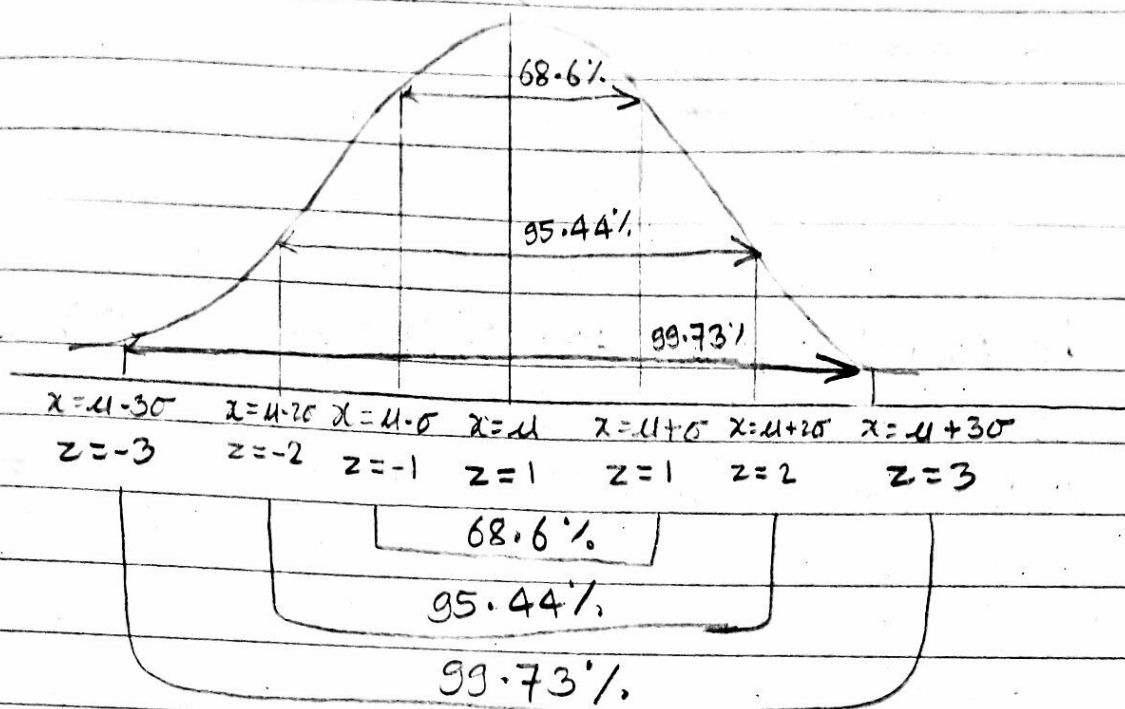 68.6%
95.44%
99.73%
x=μ-3σ x=μ-2σ x=μ-σ x=μ x=μ+σ x=μ+2σ x=μ+3σ
z=-3 z=-2 z=-1 z=1 z=1 z=2 z=3
68.6%
95.44%
99.73%